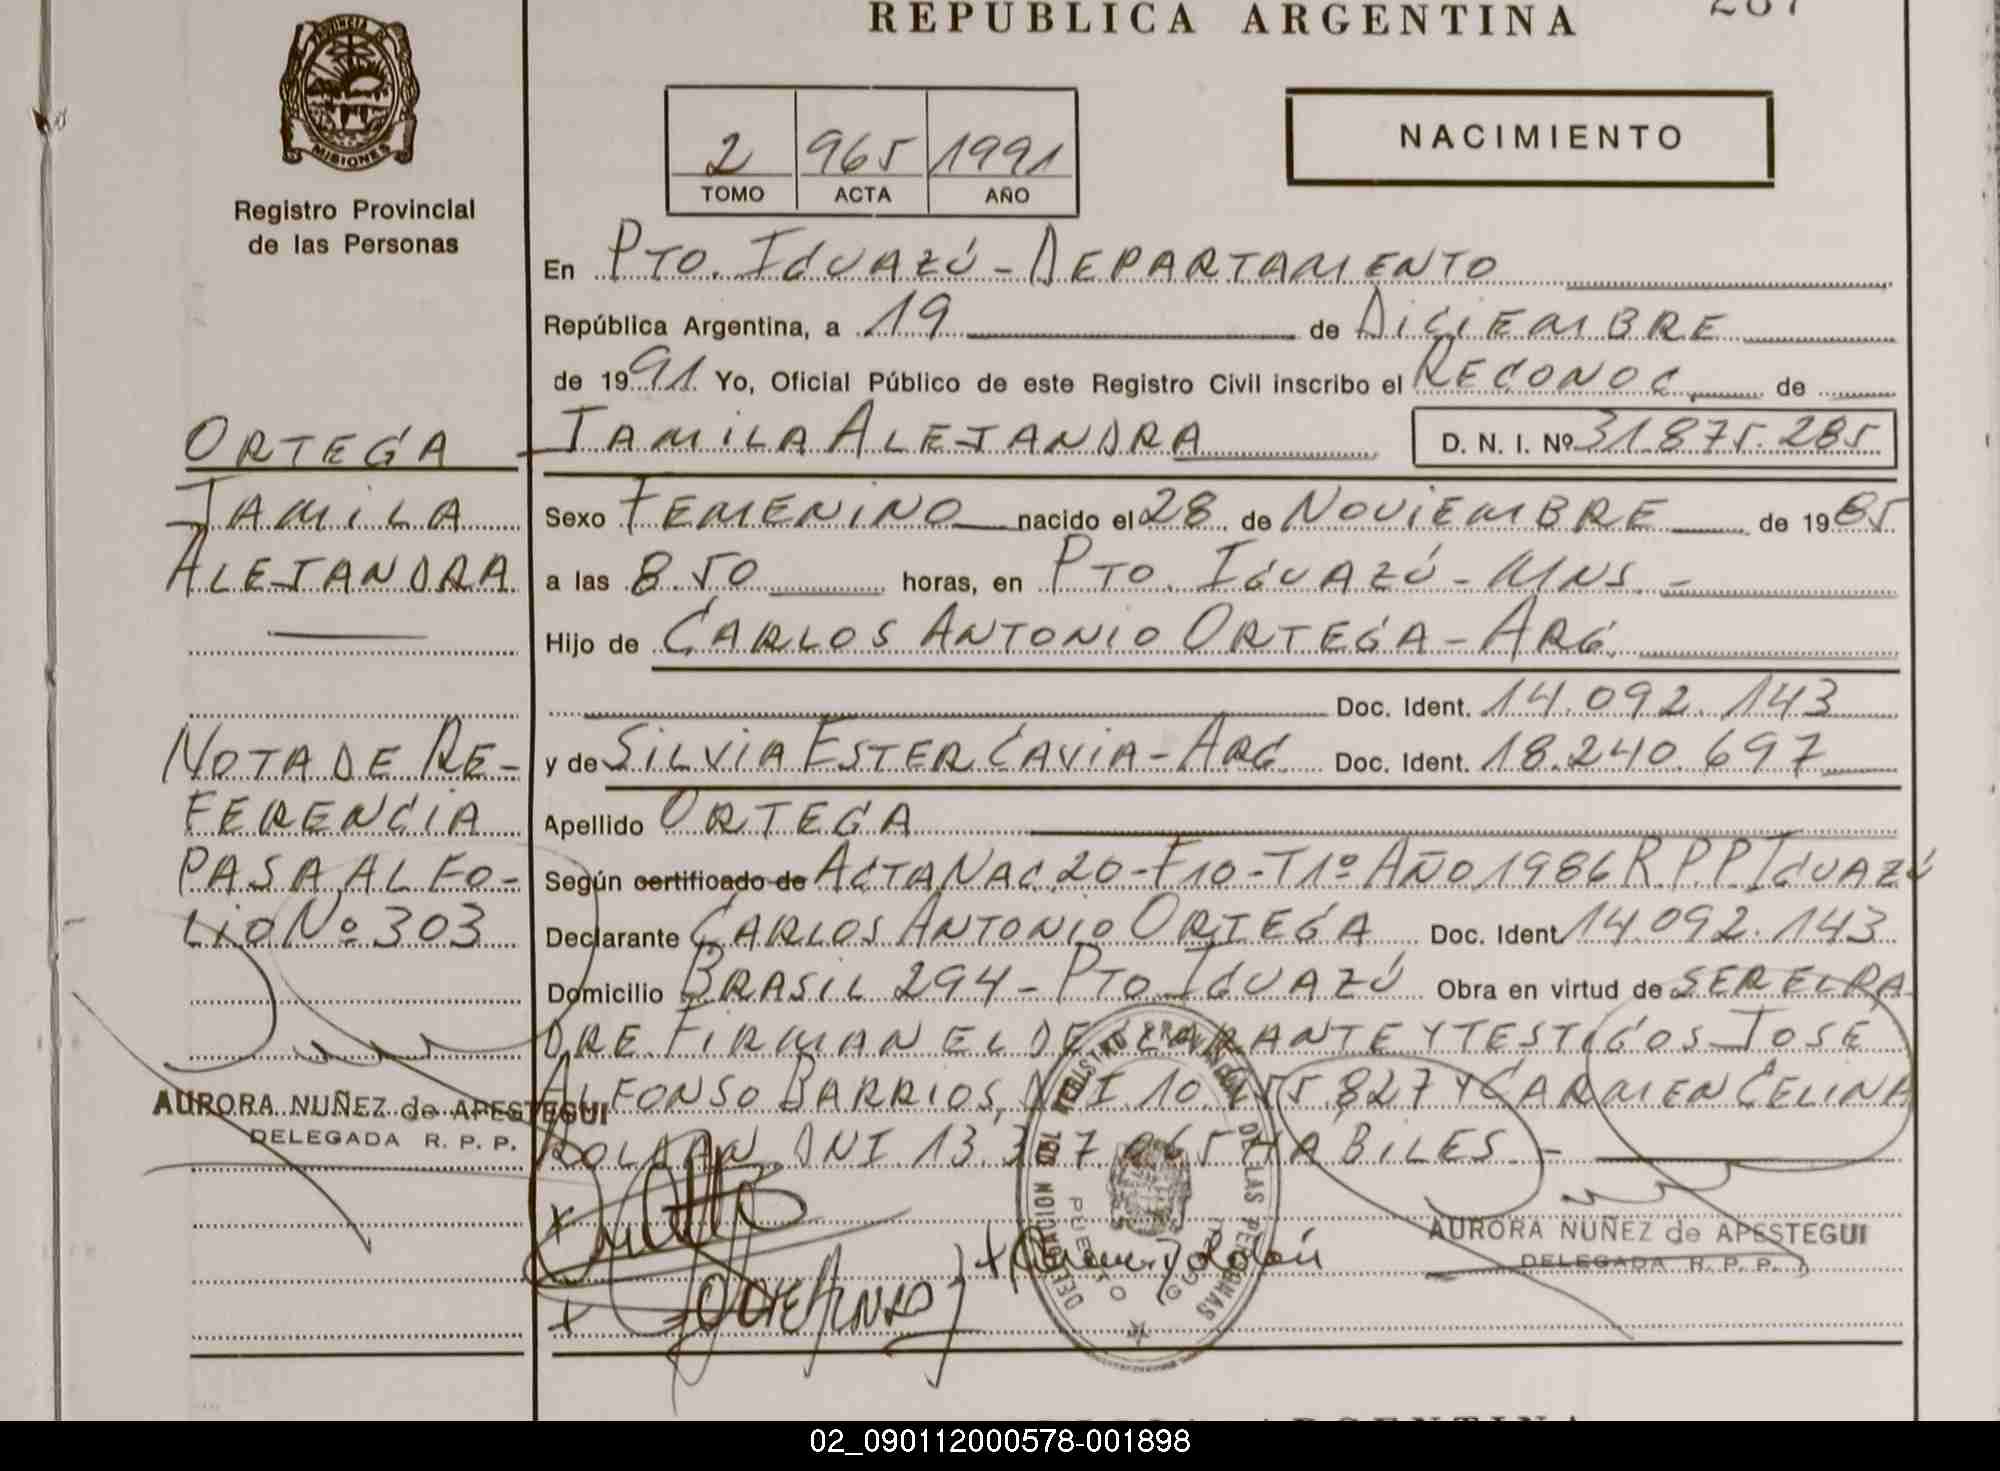 REPUBLICA ARGENTINA
PROVINCIA DE
MISIONES
Registro Provincial
de las Personas
2 965 1991
TOMO ACTA AÑO
NACIMIENTO
En PTO. IGUAZÚ - DEPARTAMENTO
República Argentina, a 19 de DICIEMBRE
de 1991 Yo, Oficial Público de este Registro Civil inscribo el RECONOC. de
JAMILA ALEJANDRA D. N. I. Nº 31.875.285
Sexo FEMENINO nacido el 28 de NOVIEMBRE de 1985
a las 8.50 horas, en PTO. IGUAZÚ - MNS. -
Hijo de CARLOS ANTONIO ORTEGA - ARG.
Doc. Ident. 14.092.143
y de SILVIA ESTER CAVIA - ARG Doc. Ident. 18.240.697
Apellido ORTEGA
Según certificado de ACTA NAC. 20 - F10 - T1º AÑO 1986 R.P.P IGUAZÚ
Declarante CARLOS ANTONIO ORTEGA Doc. Ident 14.092.143
Domicilio BRASIL 294 - PTO IGUAZÚ Obra en virtud de SER EL PA
DRE. FIRMAN EL DECLARANTE Y TESTIGOS JOSE
ALFONSO BARRIOS, DNI 10. 827 Y CARMEN CELINA
ROLAAN DNI 13.3 7.065 HABILES. -
AURORA NUÑEZ de APESTEGUI
DELEGADA R. P. P.
ORTEGA
JAMILA
ALEJANDRA
NOTA DE RE-
FERENCIA
PASA AL FO-
LIO Nº 303
AURORA NUÑEZ de APESTEGUI
DELEGADA R. P. P.
DELEGACION DEL REGISTRO PROVINCIAL DE LAS PERSONAS
PUERTO
02_090112000578-001898